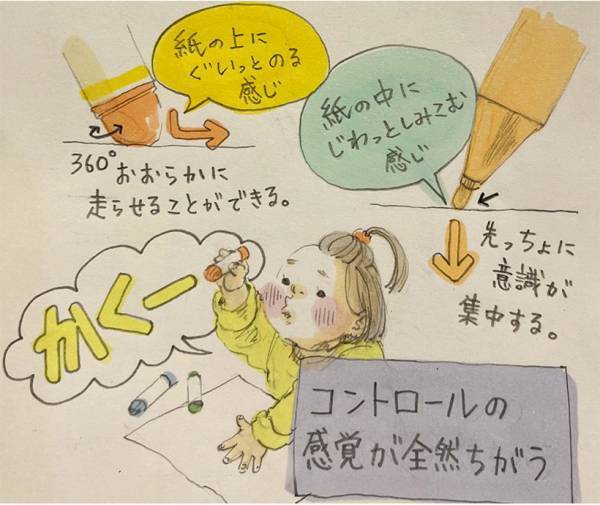 紙の上に
ぐいっとのる
感じ
360°おおらかに
走らせることができる。
紙の中に
じわっとしみこむ
感じ
先っちょに
意識が
集中する。
かくー
コントロールの
感覚が全然ちがう